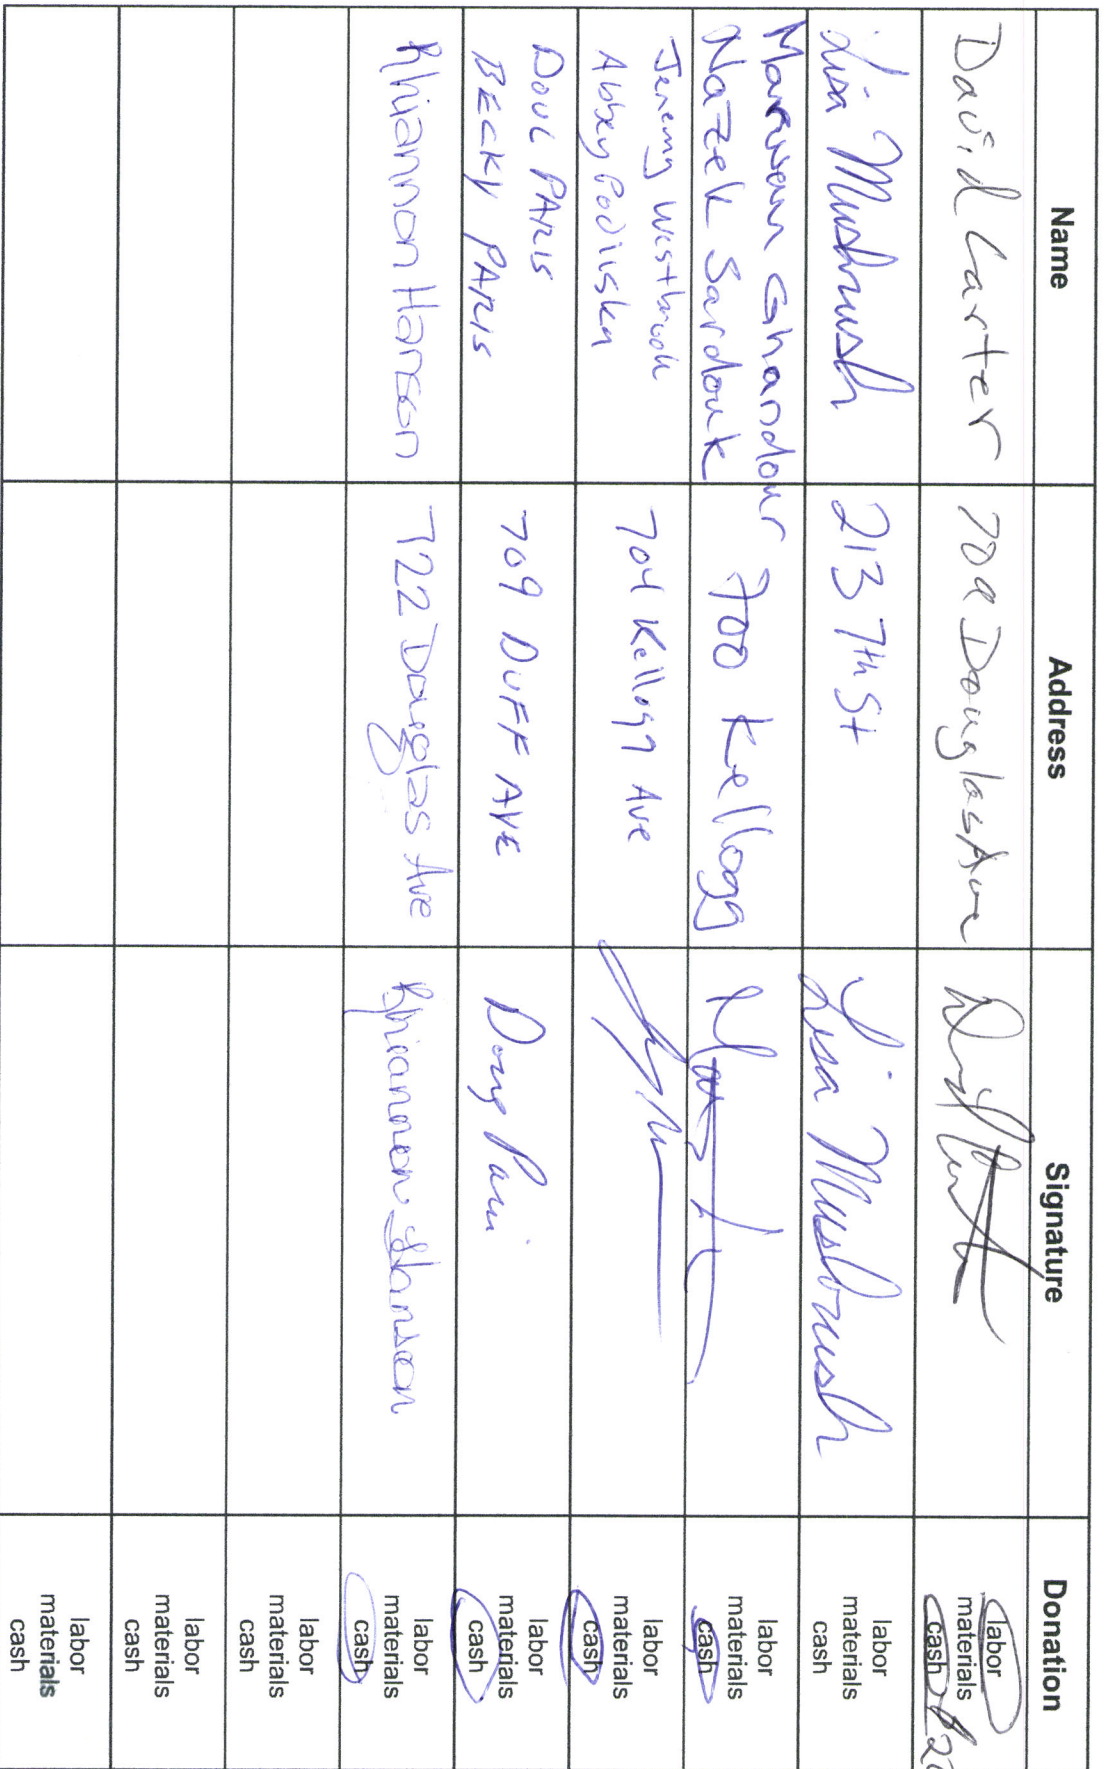 Name Address Signature Donation
David Carter 709 Douglas Ave labor
materials
cash
Lisa Mushrush 213 7th St Lisa Mushrush labor
materials
cash
Marwan Ghandour
Nazek Sardouk 700 Kellogg labor
materials
cash
Jeremy Westbrook
Abbey Podliska 704 Kellogg Ave labor
materials
cash
Doug PARIS
BECKY PARIS 709 DUFF AVE Doug Paris labor
materials
cash
Rhiannon Hanson 722 Douglas Ave Rhiannon Hanson labor
materials
cash
labor
materials
cash
labor
materials
cash
labor
materials
cash